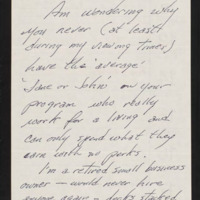 Am wondering why
you never (at least
during my viewing times)
have the 'average'
'Jane or John' on your
program who really
work for a living and
can only spend what they
earn with no perks.
I'm a retired small business
owner — would never hire
anyone again —